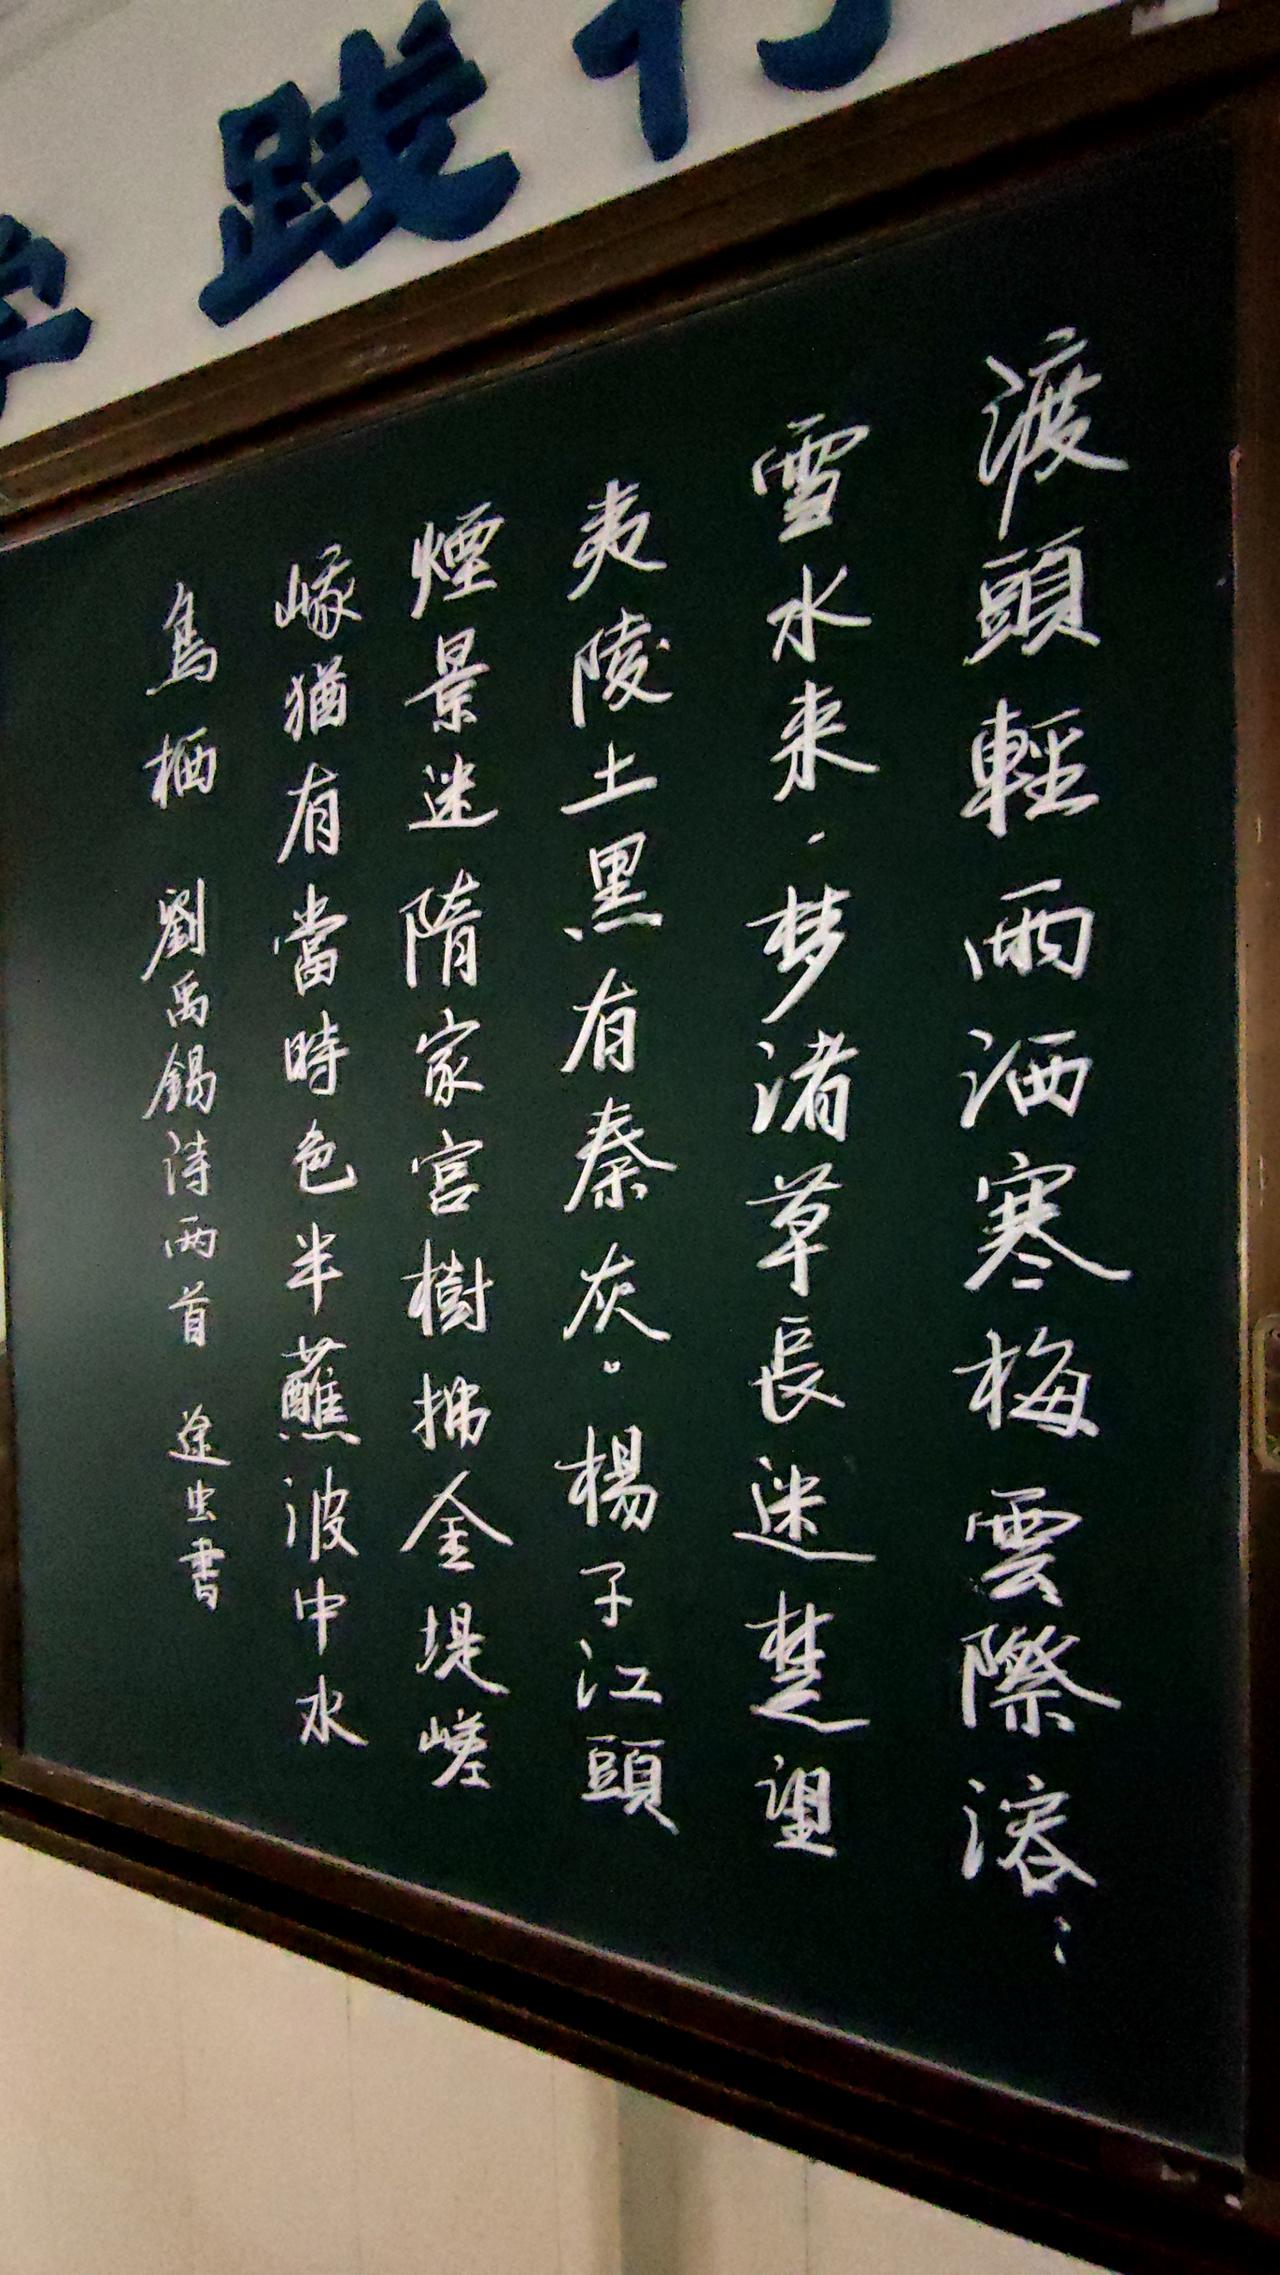 践行
渡頭輕雨洒寒梅雲際溶：
雪水来．梦渚草長迷楚望
夷陵土黑有秦灰。楊子江頭
煙景迷隋家宫樹拂金堤嵯
峨猶有當時色半蘸波中水
鳥栖 劉禹錫诗两首 途虫書